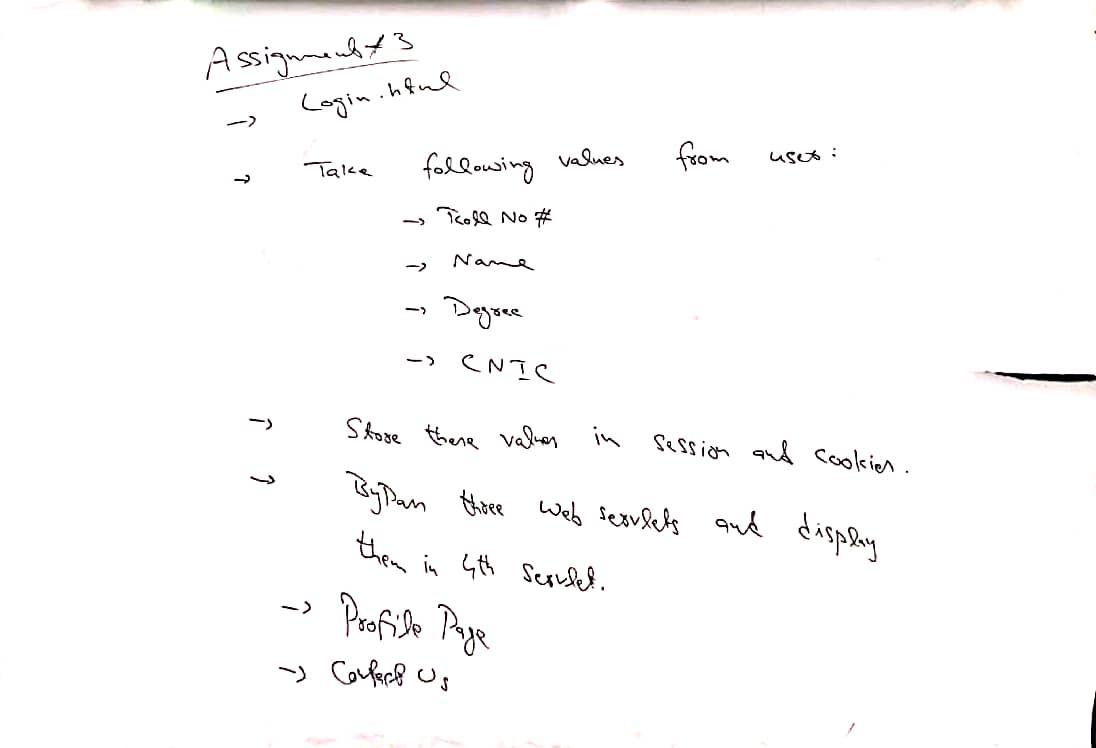 Assignment # 3
→ Login.html
→ Take following values from user:
→ Roll No #
→ Name
→ Degree
→ CNIC
→ Store these values in session and cookies.
→ ByPass three web servlets and display
them in 4th servlet.
→ Profile Page
→ Contact Us